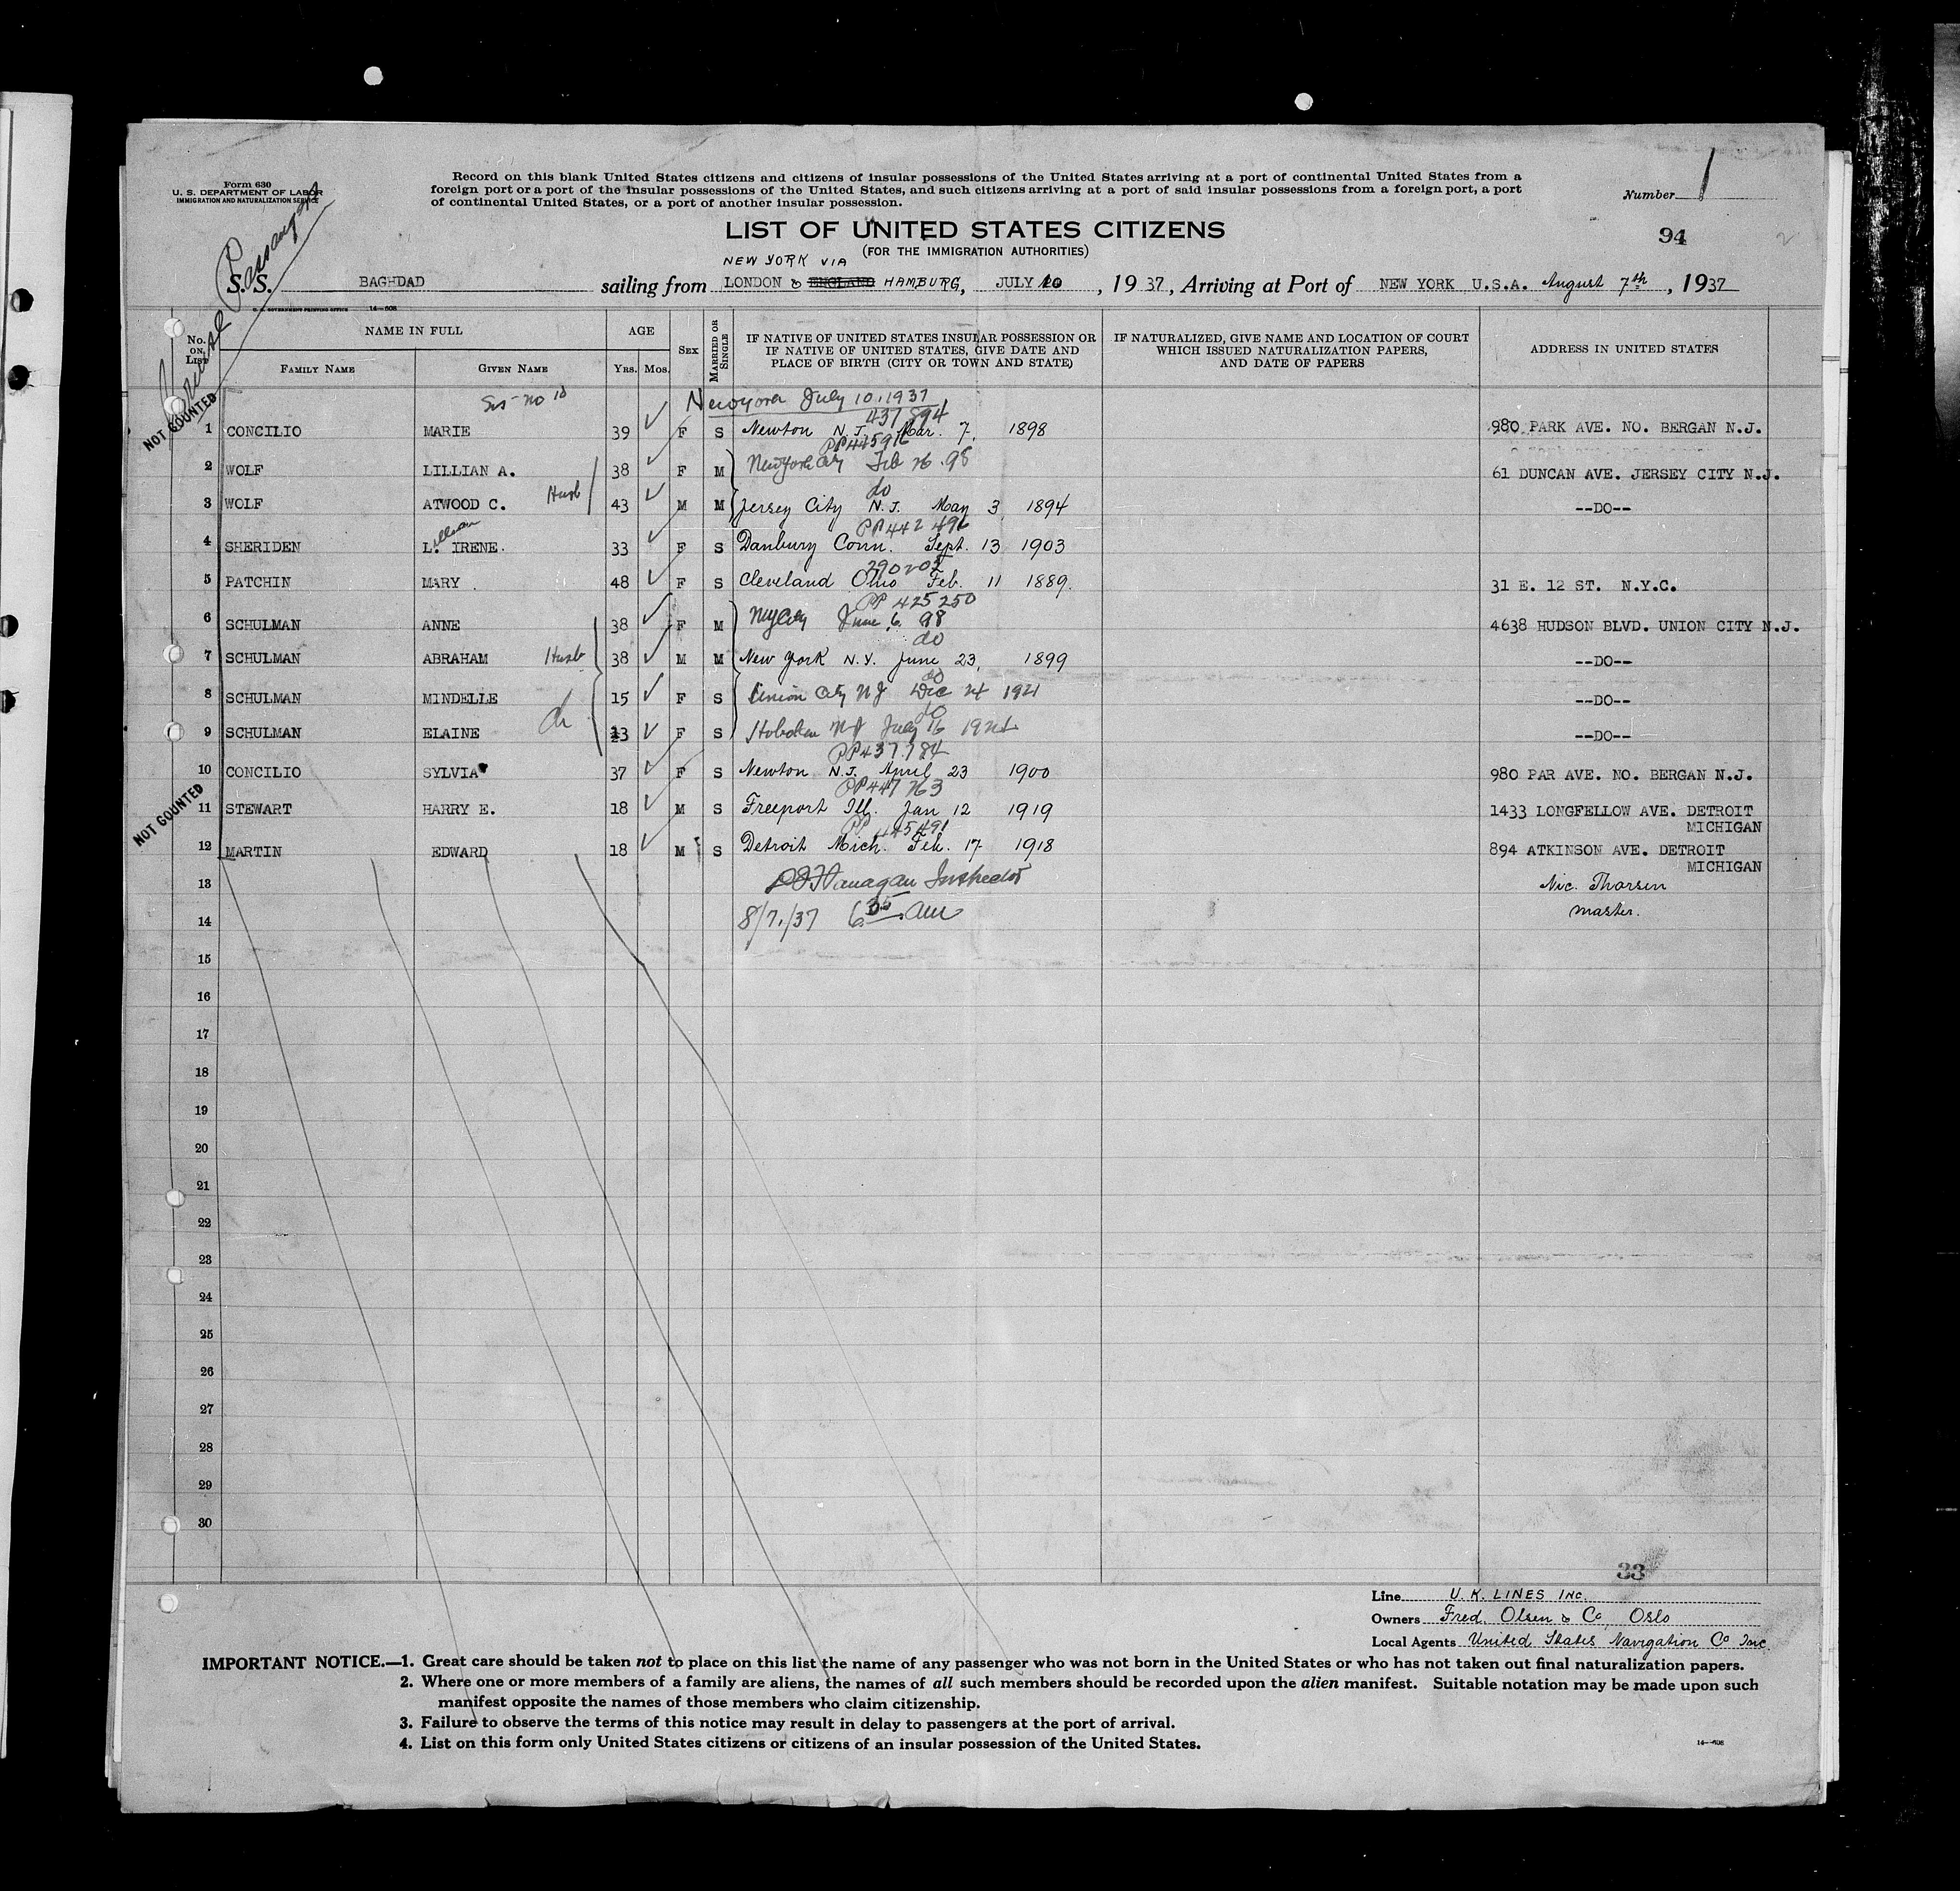 Form 630
U. S. DEPARTMENT OF LABOR
IMMIGRATION AND NATURALIZATION SERVICE
Record on this blank United States citizens and citizens of insular possessions of the United States arriving at a port of continental United States from a
foreign port or a port of the insular possessions of the United States, and such citizens arriving at a port of said insular possessions from a foreign port, a port
of continental United States, or a port of another insular possession.
Number 1
LIST OF UNITED STATES CITIZENS
(FOR THE IMMIGRATION AUTHORITIES)
94
2
Cruise Passangers
NEW YORK VIA
S. S. BAGHDAD sailing from LONDON & ENGLAND HAMBURG, JULY 10, 1937, Arriving at Port of NEW YORK U.S.A. August 7th, 1937
U. S. GOVERNMENT PRINTING OFFICE 14—608
No. ON LIST
NAME IN FULL
FAMILY NAME
GIVEN NAME
AGE
YRS. MOS.
SEX
MARRIED OR SINGLE
IF NATIVE OF UNITED STATES INSULAR POSSESSION OR
IF NATIVE OF UNITED STATES, GIVE DATE AND
PLACE OF BIRTH (CITY OR TOWN AND STATE)
IF NATURALIZED, GIVE NAME AND LOCATION OF COURT
WHICH ISSUED NATURALIZATION PAPERS,
AND DATE OF PAPERS
ADDRESS IN UNITED STATES
NOT COUNTED
Sis no 10
New York July 10, 1937
437894
1 CONCILIO MARIE 39 F S Newton N.J. Mar. 7, 1898 980 PARK AVE. NO. BERGAN N.J.
2 WOLF LILLIAN A. 38 F M New York City Feb 26 98 61 DUNCAN AVE. JERSEY CITY N.J.
do
3 WOLF ATWOOD C. Husb 43 M M Jersey City N.J. May 3 1894 --DO--
PP 442 496
Lillian
4 SHERIDEN L. IRENE. 33 F S Danbury Conn. Sept. 13 1903
5 PATCHIN MARY 48 F S Cleveland Ohio Feb. 11 1889. 31 E. 12 ST. N.Y.C.
PP 425250
6 SCHULMAN ANNE 38 F M NYCity June 6, 98 4638 HUDSON BLVD. UNION CITY N.J.
do
7 SCHULMAN ABRAHAM Husb 38 M M New York N.Y. June 23, 1899 --DO--
do
8 SCHULMAN MINDELLE 15 F S Union City NJ Dec 24 1921 --DO--
do
ch
9 SCHULMAN ELAINE 13 F S Hoboken NJ July 16 1924 --DO--
PP 437784
10 CONCILIO SYLVIA 37 F S Newton N.J. April 23 1900 980 PAR AVE. NO. BERGAN N.J.
PP 447763
NOT COUNTED
11 STEWART HARRY E. 18 M S Freeport Ill. Jan 12 1919 1433 LONGFELLOW AVE. DETROIT
MICHIGAN
PP 445491
12 MARTIN EDWARD 18 M S Detroit Mich. Feb. 17 1918 894 ATKINSON AVE. DETROIT
MICHIGAN
13 Flanagan Inspector Nic. Thorsen
master.
14 8/7/37 6 35 am
15
16
17
18
19
20
21
22
23
24
25
26
27
28
29
30
33
Line U. K. LINES INC.
Owners Fred. Olsen & Co, Oslo
Local Agents United States Navigation Co Inc.
IMPORTANT NOTICE.—1. Great care should be taken not to place on this list the name of any passenger who was not born in the United States or who has not taken out final naturalization papers.
2. Where one or more members of a family are aliens, the names of all such members should be recorded upon the alien manifest. Suitable notation may be made upon such
manifest opposite the names of those members who claim citizenship.
3. Failure to observe the terms of this notice may result in delay to passengers at the port of arrival.
4. List on this form only United States citizens or citizens of an insular possession of the United States.
14—608